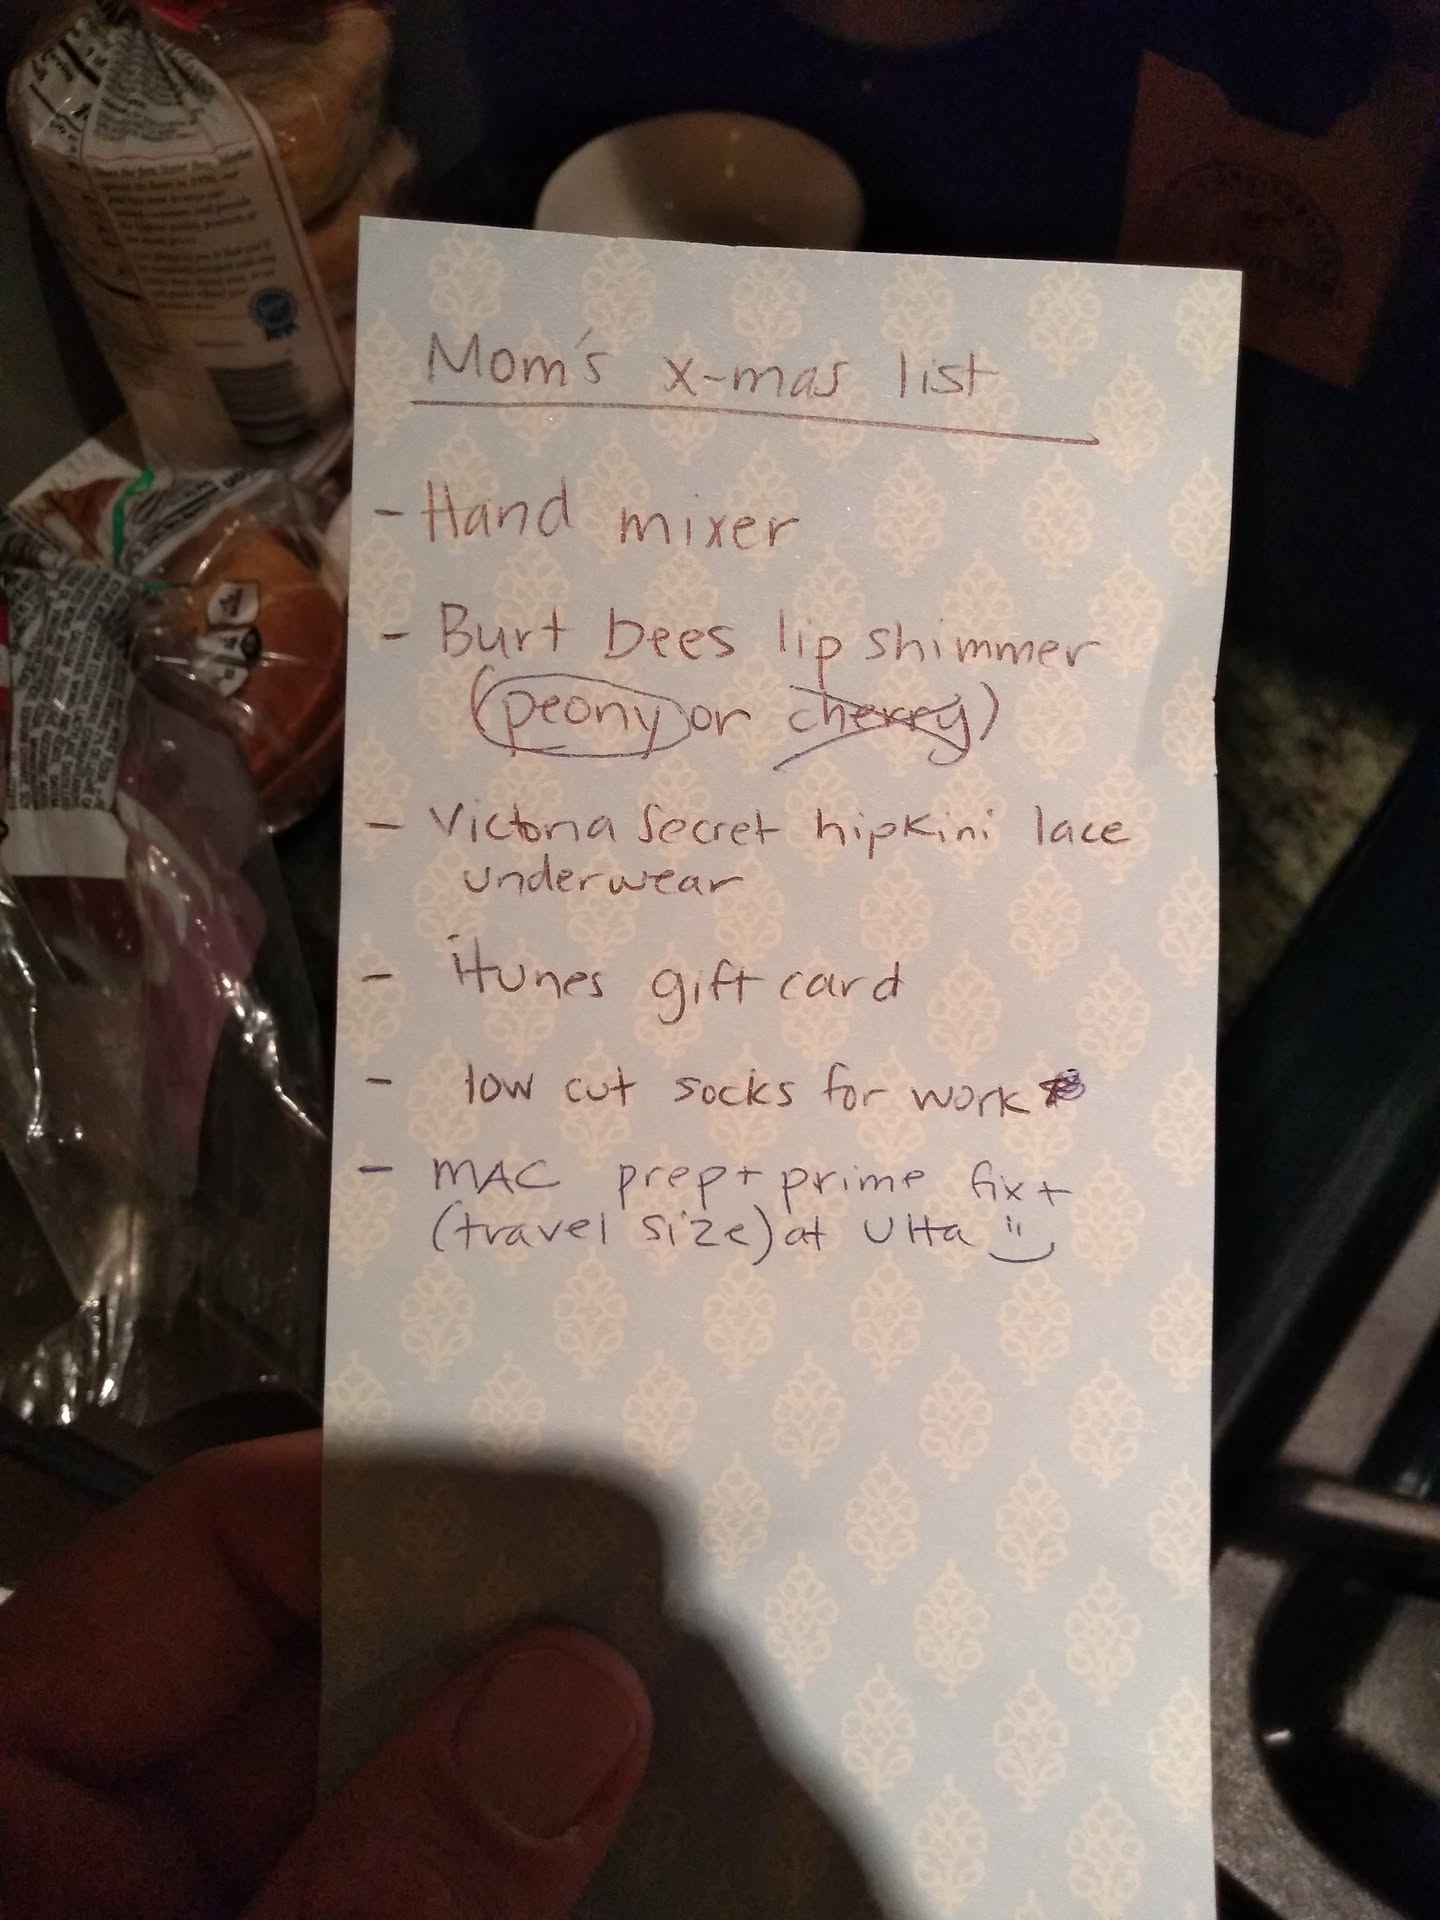 Mom's x-mas list
- Hand mixer
- Burt bees lip shimmer
(peony or cherry)
- Victoria Secret hipkini lace
underwear
- itunes gift card
- low cut socks for work
- MAC prep + prime fix +
(travel size) at Ulta